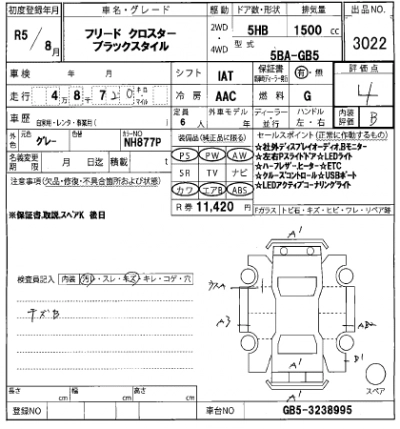 初度登録年月 車名・グレード 駆動 ドア数・形状 排気量 出品NO.
R5/8月 フリード クロスター ブラックスタイル 2WD・4WD 5HB 1500 cc 3022
型式 5BA-GB5
車検 年 月 シフト IAT 保証書 有・無 評価点 4
走行 冷房 AAC 燃料 G
車歴 自家用・レンタ・事業用( ) 定員 6人 外車モデル 年 ディーラー 並行 ハンドル 左・右 内装評価 B
外色 元色 グレー カラーNO NH877P 装備品(純正品に限る) セールスポイント(正常に作動するもの)
名義変更期限 月 日迄 積載 t
PS PW AW
SR TV ナビ
カワ エアB ABS
☆社外ディスプレイオーディオ.Bモニター
☆左右Pスライドドア☆LEDライト
☆ハーフレザーヒーター☆ETC
☆クルーズコントロール☆USBポート
☆LEDアクティブコーナリングライト
注意事項(欠品・修復・不具合箇所および状態)
R券 11,420 円
※保証書,取説,スペアK 後日
Fガラス トビ石・キズ・ヒビ・ワレ・リペア跡
検査員記入 内装 汚れ・スレ・キズ・キレ・コゲ・穴
チズB
A1
A3
B1
A1
スペア
長さ cm 幅 cm 高さ cm
登録NO 車台NO GB5-3238995